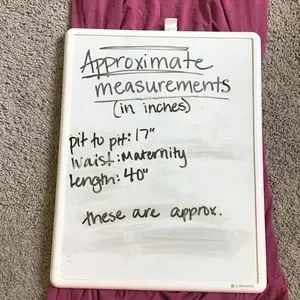 Approximate
measurements
(in inches)
pit to pit: 17"
Waist: Maternity
Length: 40"
these are approx.